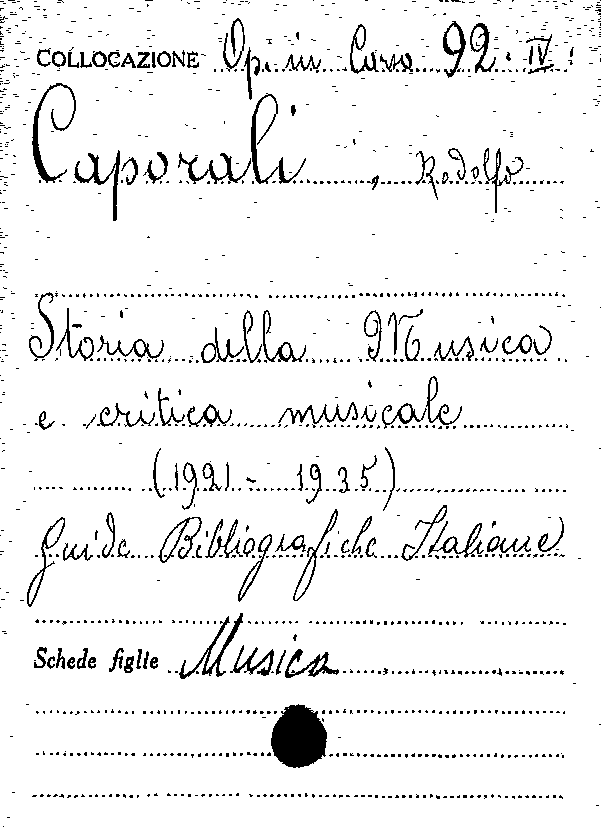 COLLOCAZIONE Op. in Corso 92. IV.
Caporali, Rodolfo
Storia della Musica
e critica musicale
(1921 - 1935)
Guide Bibliografiche Italiane
Schede figlie Musica